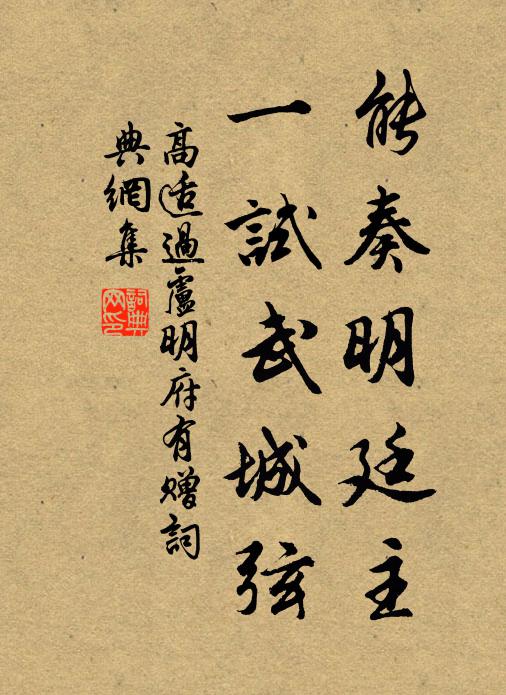 能奏明廷主
一試武城弦
高适過盧明府有贈詞
典網集
詞典网印